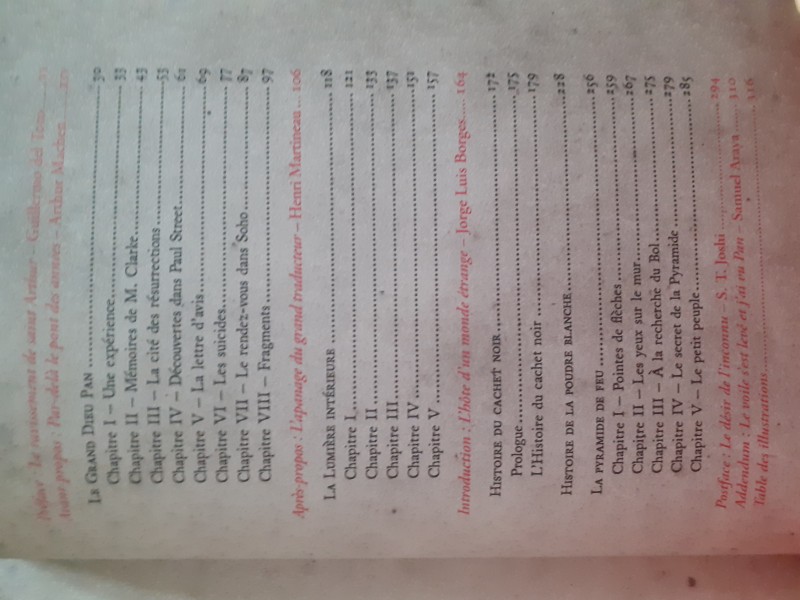 Préface : Le ravissement de saint Arthur – Guillermo del Toro
Avant-propos : Par-delà le pont des années – Arthur Machen
LE GRAND DIEU PAN 30
Chapitre I – Une expérience 33
Chapitre II – Mémoires de M. Clarke 43
Chapitre III – La cité des résurrections 53
Chapitre IV – Découvertes dans Paul Street 61
Chapitre V – La lettre d'avis 69
Chapitre VI – Les suicides 77
Chapitre VII – Le rendez-vous dans Soho 87
Chapitre VIII – Fragments 97
Après-propos : L'apanage du grand traducteur – Henri Martineau 106
LA LUMIÈRE INTÉRIEURE 118
Chapitre I 121
Chapitre II 133
Chapitre III 137
Chapitre IV 151
Chapitre V 157
Introduction : L'hôte d'un monde étrange – Jorge Luis Borges 164
HISTOIRE DU CACHET NOIR 172
Prologue 175
L'Histoire du cachet noir 179
HISTOIRE DE LA POUDRE BLANCHE 228
LA PYRAMIDE DE FEU 256
Chapitre I – Pointes de flèches 259
Chapitre II – Les yeux sur le mur 267
Chapitre III – À la recherche du Bol 275
Chapitre IV – Le secret de la Pyramide 279
Chapitre V – Le petit peuple 285
Postface : Le désir de l'inconnu – S. T. Joshi 294
Addendum : Le voile s'est levé et j'ai vu Pan – Samuel Araya 310
Table des illustrations 316